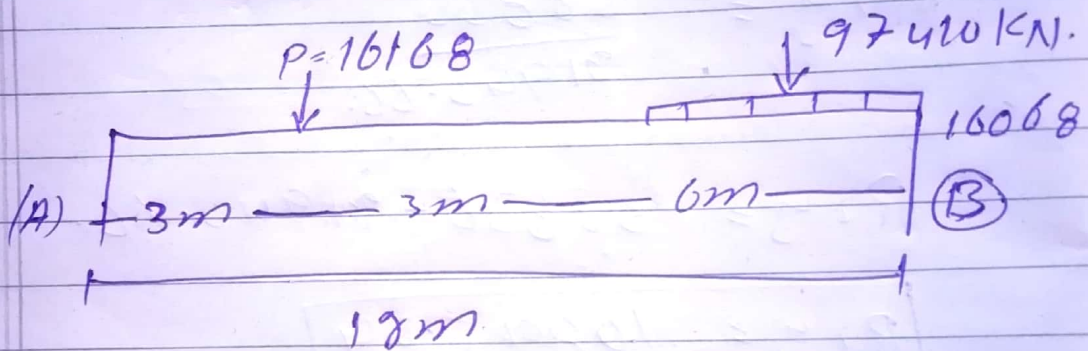 P=16168
97420 KN.
16068
(A) 3m 3m 6m B
12m